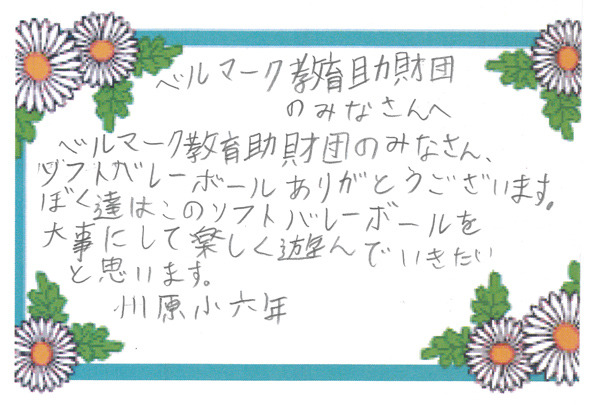 ベルマーク教育助財団
のみなさんへ
ベルマーク教育助財団のみなさん、
ソフトバレーボールありがとうございます。
ぼく達はこのソフトバレーボールを
大事にして楽しく遊んでいきたい
と思います。
川原小六年